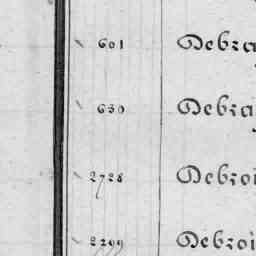 601 Debra
630 Debra
2728 Debroi
2299 Debroi